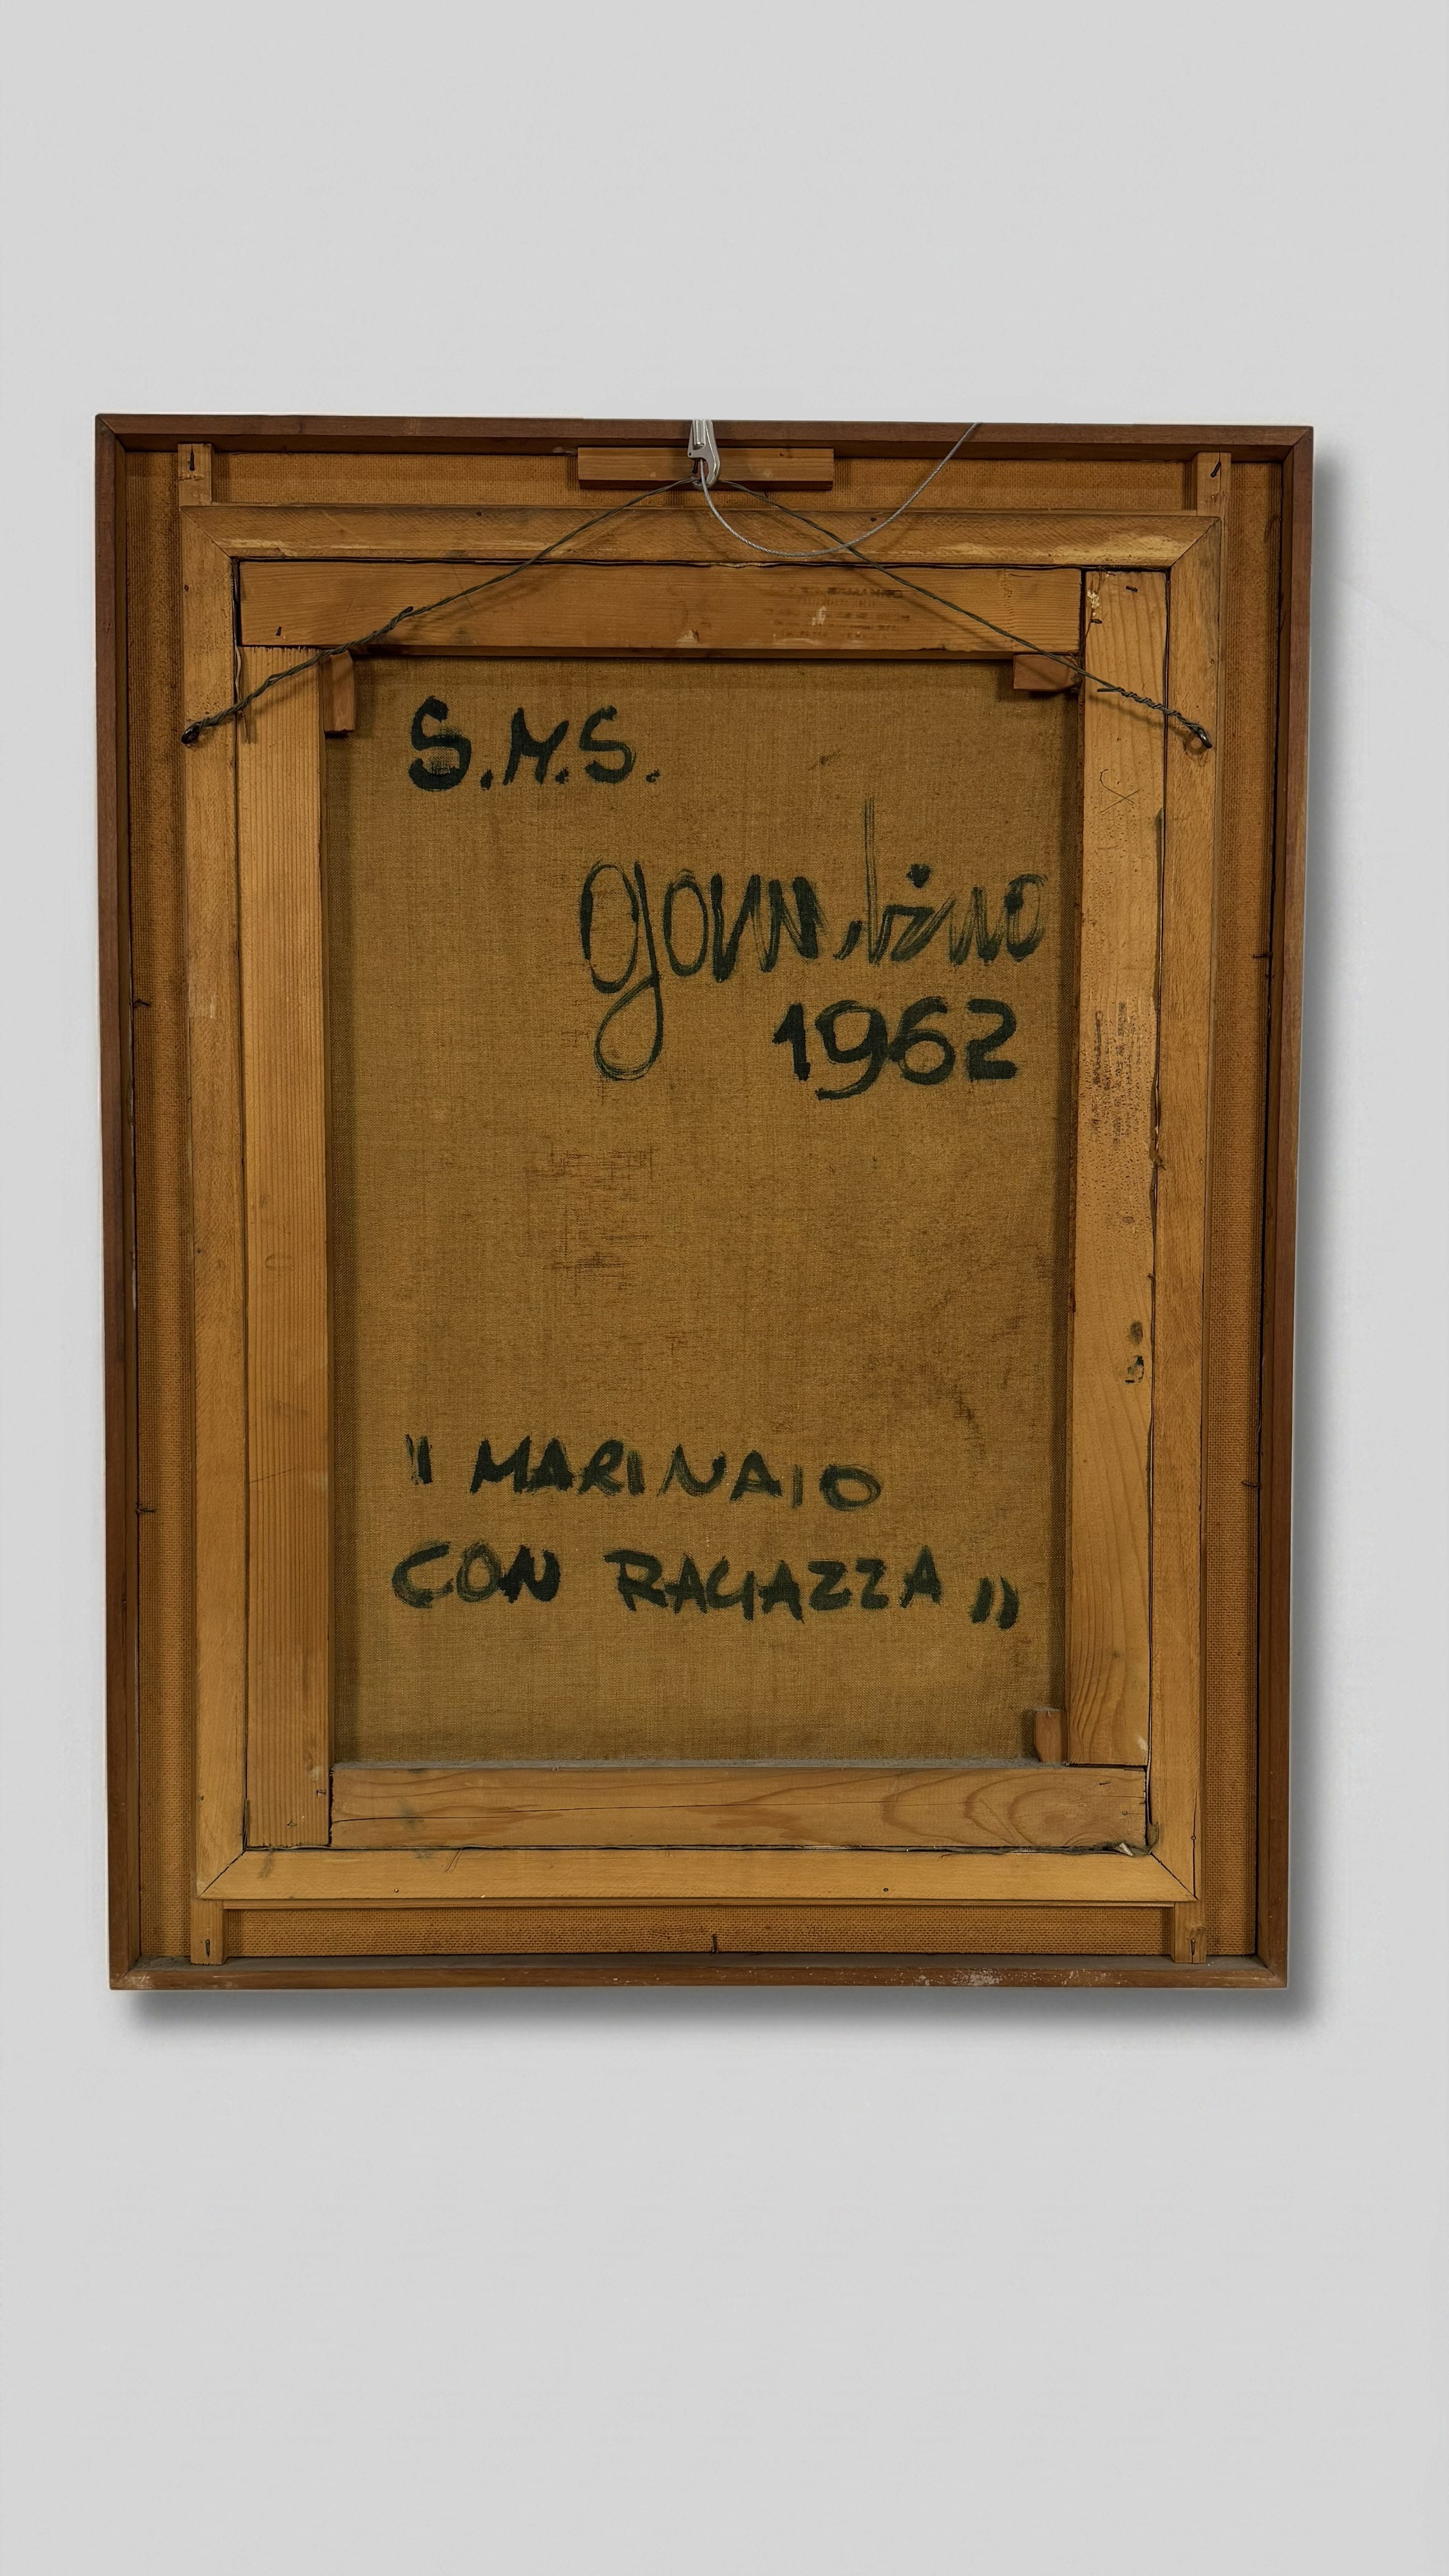 S.M.S.
1962
" MARINAIO
CON RAGAZZA "